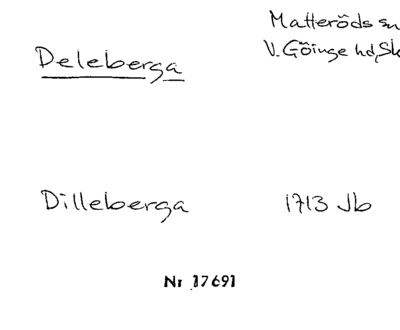 Matteröds sn
V. Göinge hd, Sk
Deleberga
Dilleberga 1713 Jb
Nr 17691